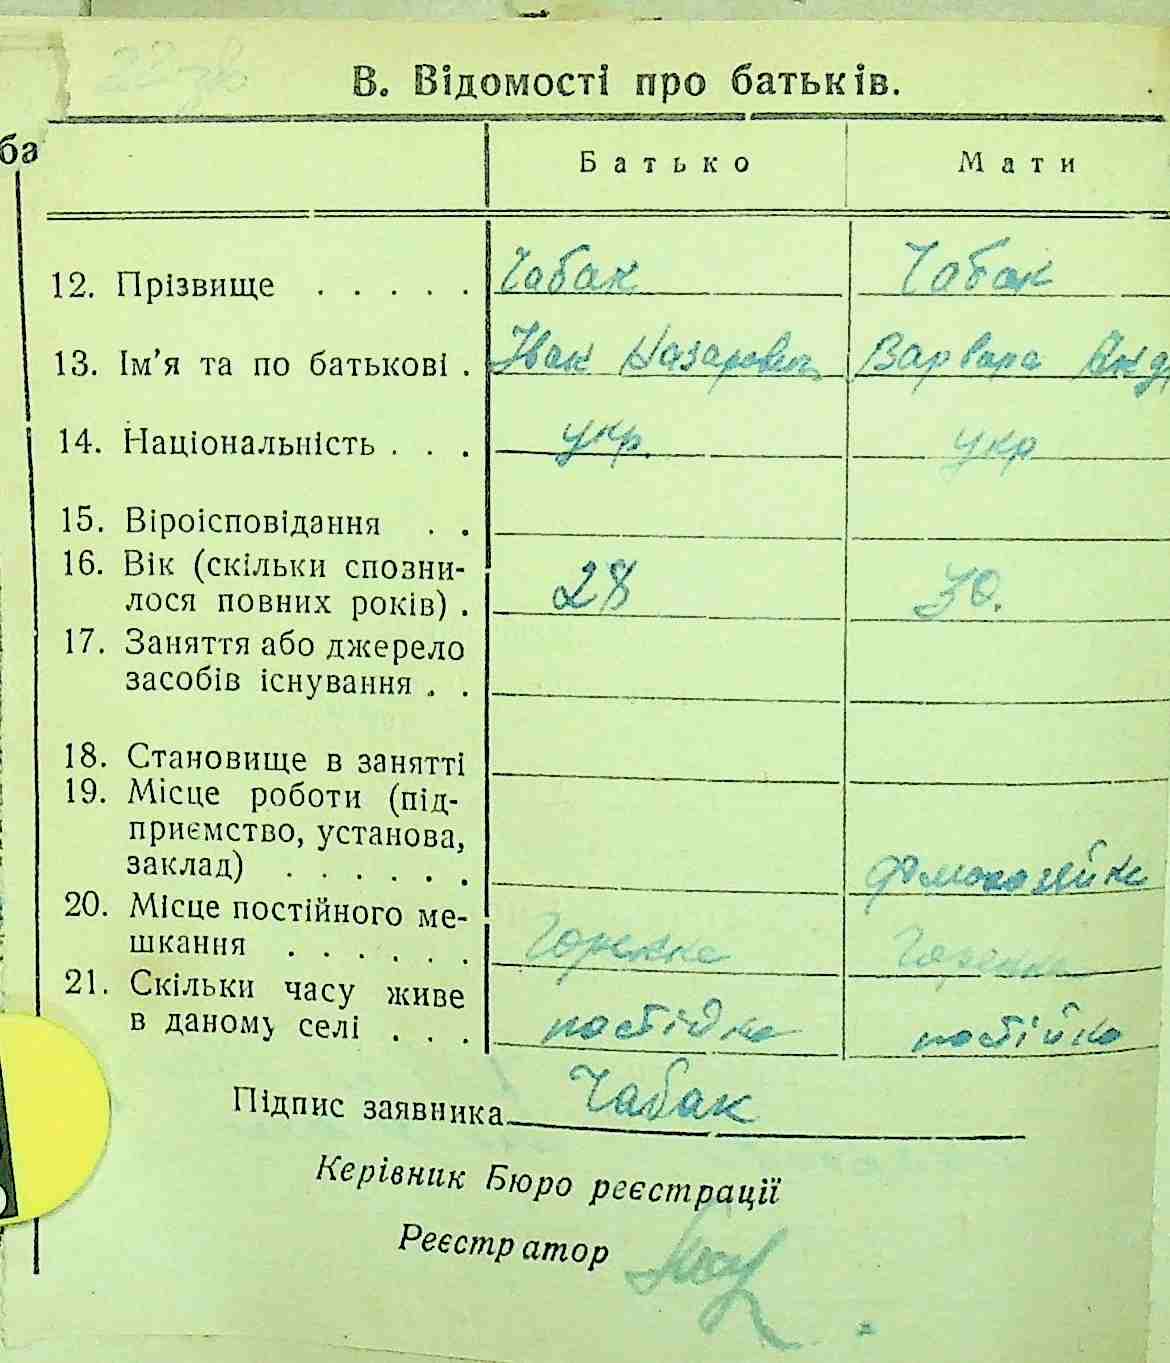 В. Відомості про батьків.
ба
Батько Мати
12. Прізвище . . . . . Чабак Чабак
13. Ім'я та по батькові . Іван Назарович Варвара Анд
14. Національність . . . укр. укр
15. Віроісповідання . .
16. Вік (скільки спозни-
лося повних років) . 28 30.
17. Заняття або джерело
засобів існування . .
18. Становище в занятті
19. Місце роботи (під-
приємство, установа,
заклад) . . . . . . домохазяйка
20. Місце постійного ме-
шкання . . . . . . Горенка Горенка
21. Скільки часу живе
в даному селі . . . постійно постійно
Підпис заявника Чабак
Керівник Бюро реєстрації
Реєстратор